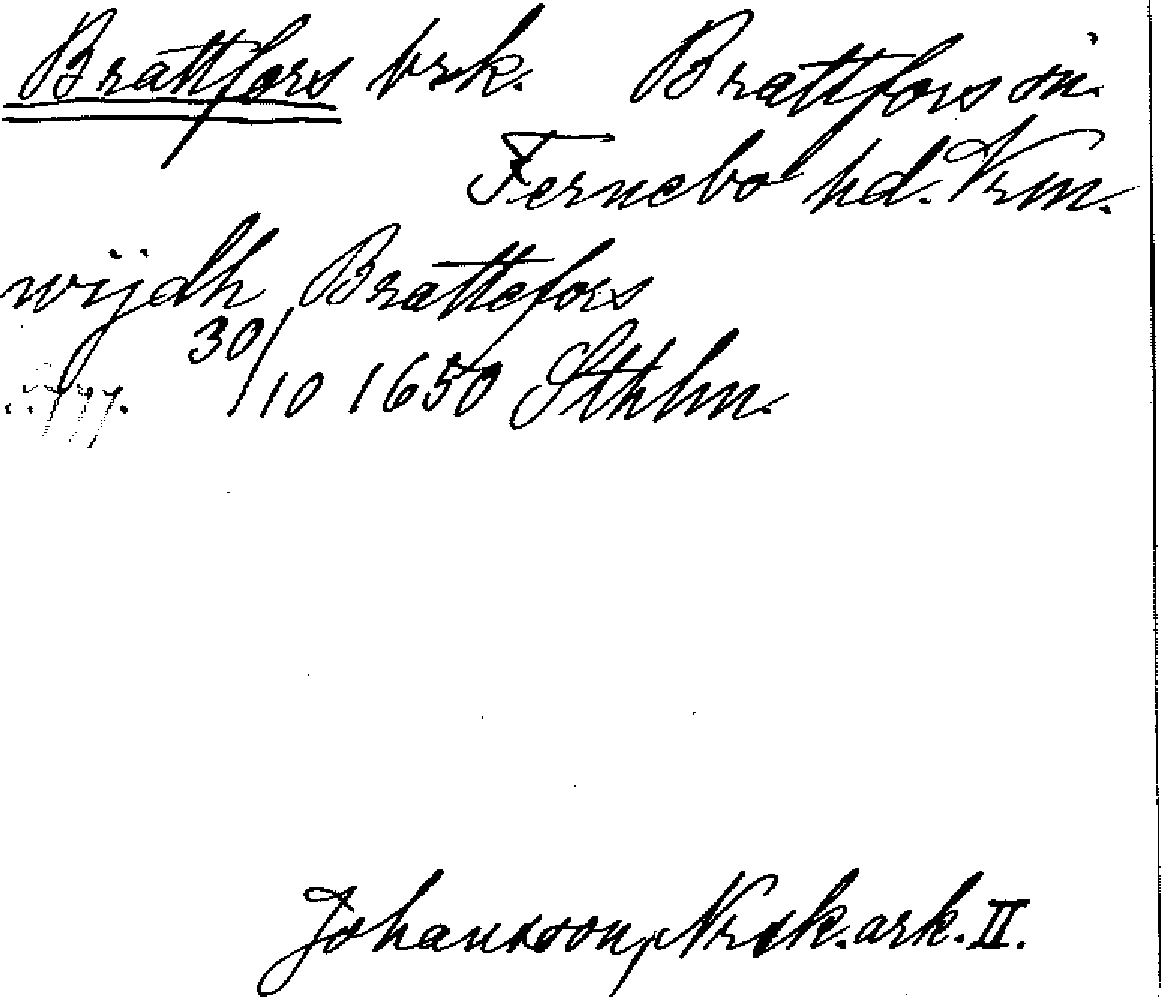 Brattfors brk. Brattfors sn.
Fernebo hd. Vrm.
wijdh Brattefors
30/10 1650 Sthlm.
Johansson, Norsk. ark. II.